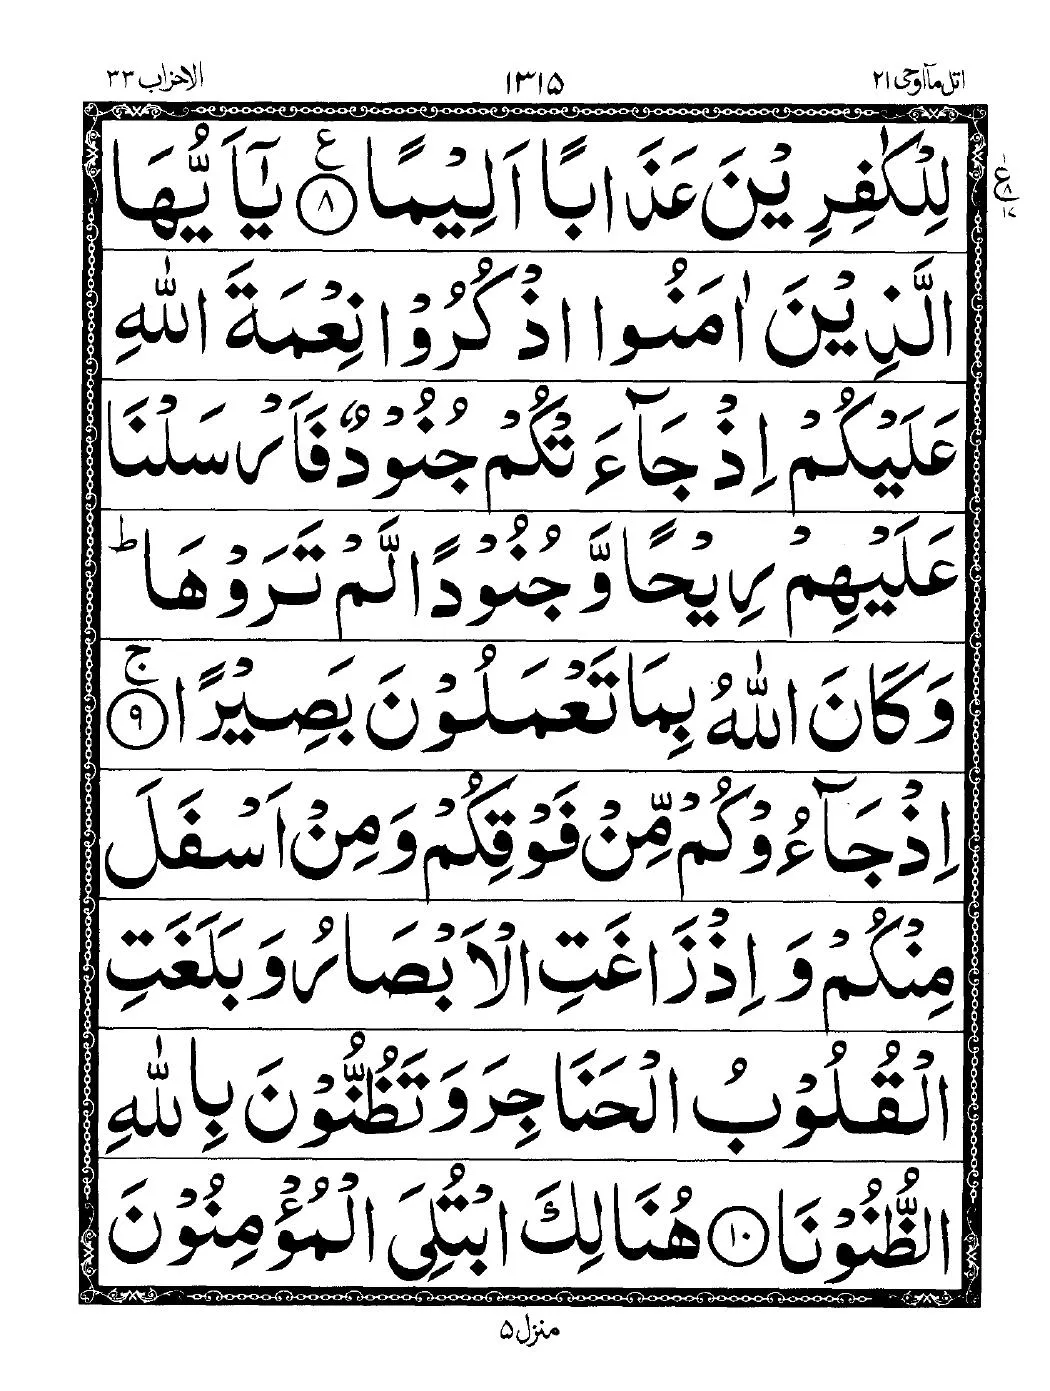 اتل ماۤ اوحی ۲۱ ۱۳۱۵ الاحزاب ۳۳
لِلْكٰفِرِیْنَ عَذَابًا اَلِیْمًا ۝۸ ع یٰۤاَیُّهَا
ع ۸ ۱۷
الَّذِیْنَ اٰمَنُوا اذْكُرُوْا نِعْمَةَ اللّٰهِ
عَلَیْكُمْ اِذْ جَآءَتْكُمْ جُنُوْدٌ فَاَرْسَلْنَا
عَلَیْهِمْ رِیْحًا وَّ جُنُوْدًا لَّمْ تَرَوْهَا ؕ
وَ كَانَ اللّٰهُ بِمَا تَعْمَلُوْنَ بَصِیْرًا ۝۹ ۚ
اِذْ جَآءُوْكُمْ مِّنْ فَوْقِكُمْ وَ مِنْ اَسْفَلَ
مِنْكُمْ وَ اِذْ زَاغَتِ الْاَبْصَارُ وَ بَلَغَتِ
الْقُلُوْبُ الْحَنَاجِرَ وَ تَظُنُّوْنَ بِاللّٰهِ
الظُّنُوْنَا ۝۱۰ هُنَالِكَ ابْتُلِیَ الْمُؤْمِنُوْنَ
منزل ۵